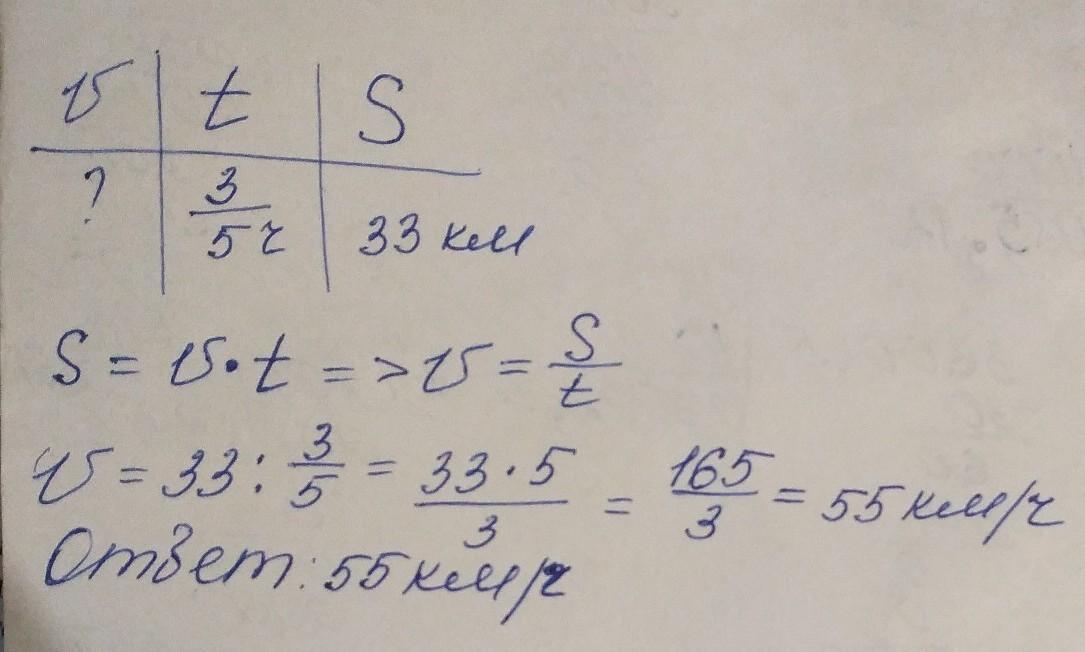 v | t | S
? | 3/5 ч | 33 км
S = v · t => v = S/t
v = 33 : 3/5 = 33·5/3 = 165/3 = 55 км/ч
Ответ: 55 км/ч